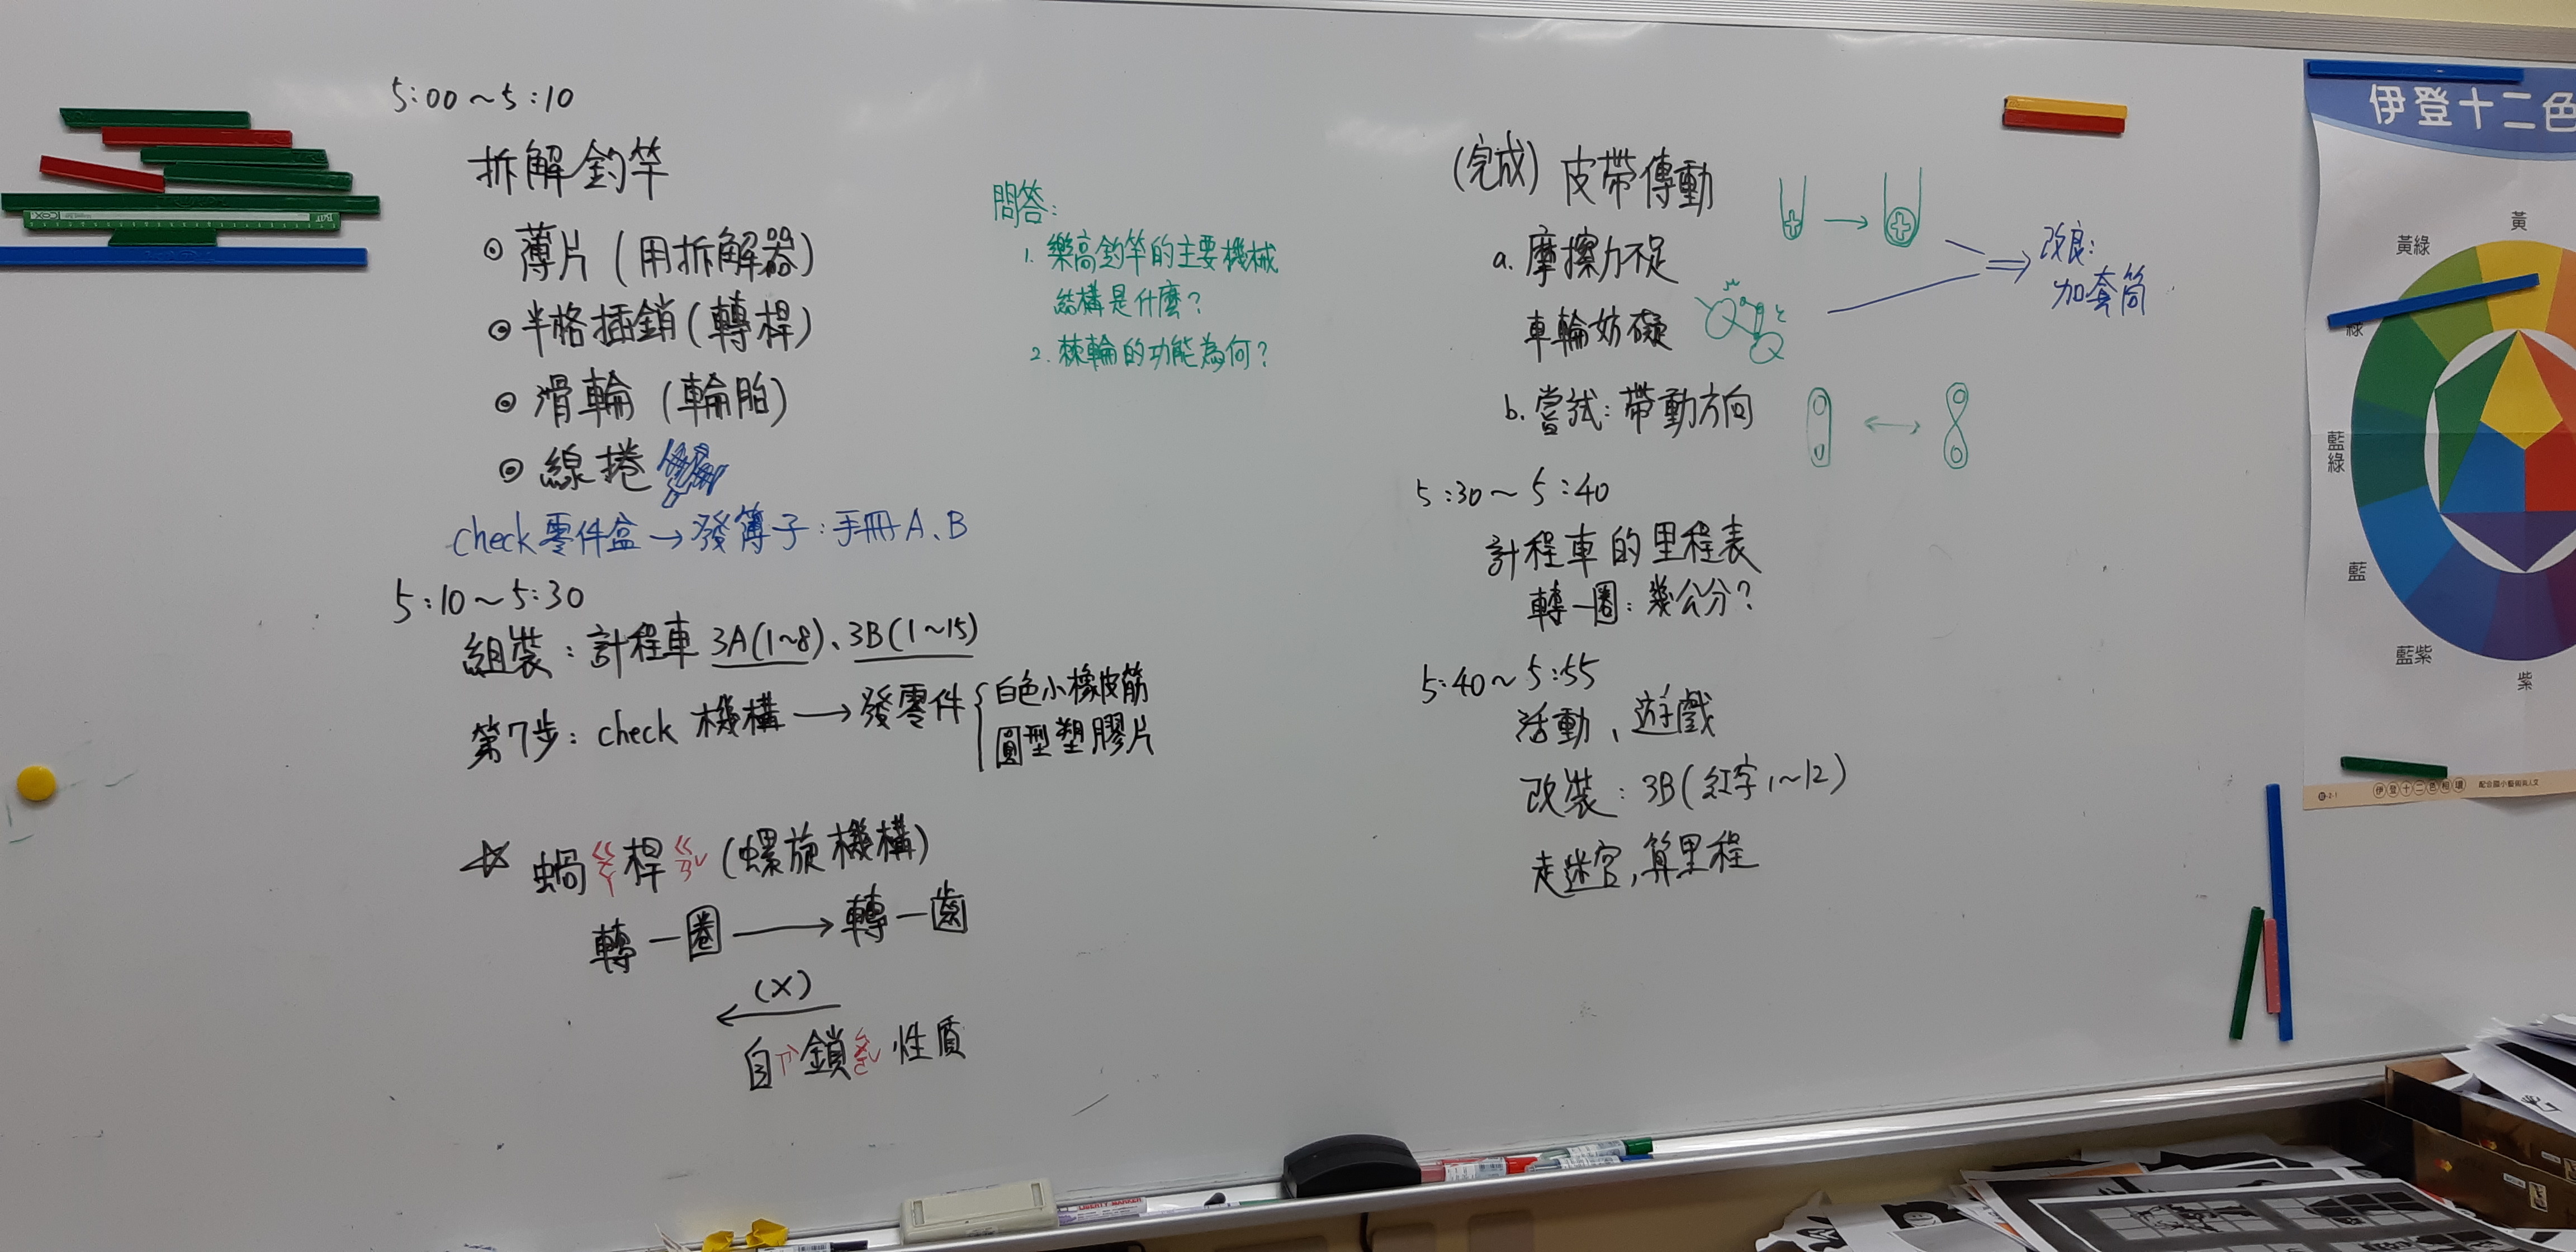 5:00～5:10
拆解釣竿
薄片(用拆解器)
半格插銷(轉桿)
滑輪(輪胎)
線捲
check零件盒→發簿子:手冊A、B
5:10～5:30
組裝:計程車 3A(1~8)、3B(1~15)
第7步: check 機構→發零件{白色小橡皮筋
圓型塑膠片
☆ 蝸ㄍㄨㄚ桿ㄍㄢˇ(螺旋機構)
轉一圈→轉一齒
(X)
←
自ㄗˋ鎖ㄙㄨㄛˇ性質
問答:
1. 樂高釣竿的主要機械
結構是什麼?
2. 棘輪的功能為何?
(完成)皮帶傳動
a. 摩擦力不足
車輪妨礙
⇒改良:
加套筒
b. 嘗試:帶動方向
5:30～5:40
計程車的里程表
轉一圈:幾公分?
5:40～5:55
活動、遊戲
改裝:3B(紅字1~12)
走迷宮,算里程
伊登十二色
黃
黃綠
綠
藍綠
藍
藍紫
紫
伊登十二色相環